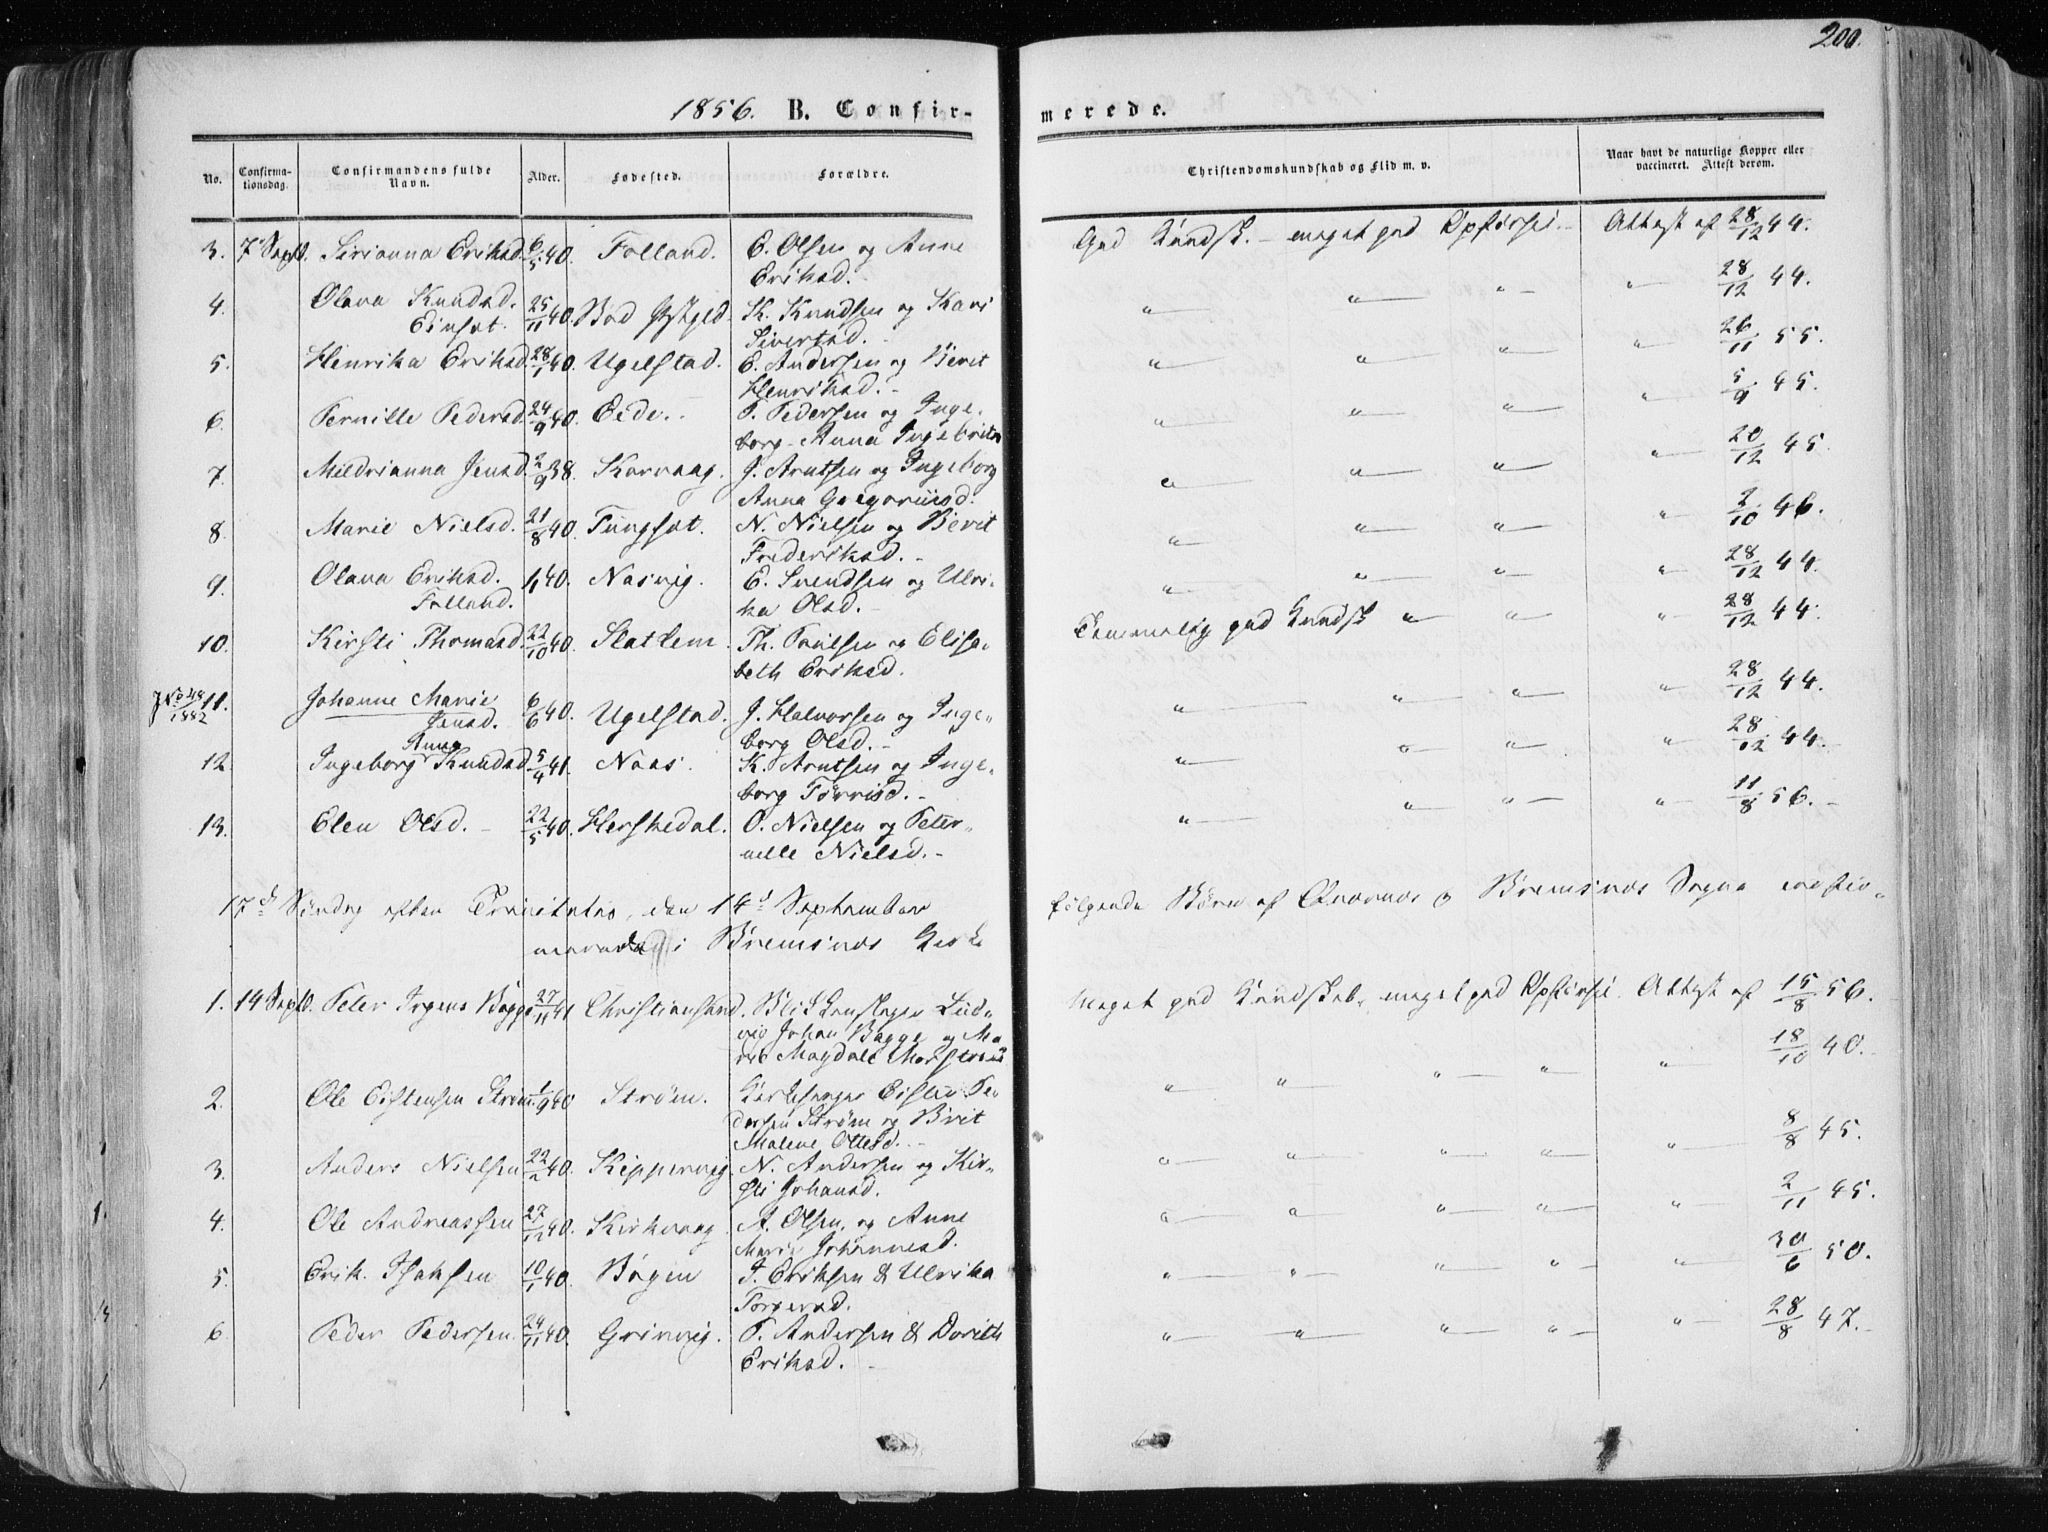 200.
1856. B. Confir-
merede.
No.
Confirma-
tionsdag.
Confirmandens fulde
Navn.
Alder.
Fødested.
Forældre.
Christendomskundskab og Flid m. v.
Naar havt de naturlige Kopper eller
vaccineret. Attest derom.
3. 7 Septb. Sirianna Eriksd. 6/5 40. Folland. E. Olsen og Anne
Eriksd. -
God Kundsk. - meget god Opførsel. - Attest af 28/12 44.
4. Olava Knudsd. 25/11 40. Bod Præstgjeld. K. Knudsen og Kari
Einset. Sivertsd. -
" " " " 28/12 44.
5. Henrika Eriksd. 28/1 40. Ugelstad. E. Andersen og Berit
Henriksd. -
" " " " 26/11 55.
6. Pernille Pedersd. 24/9 40. Eede. - P. Pedersen og Inge-
borg Anna Ingebrits
" " " " 5/9 45.
7. Mildrianna Jensd. 2/9 38. Korvaag. J. Arntsen og Ingeborg
Anna Gregoriusd.
" " " " 20/12 45.
8. Marie Nielsd. 21/8 40. Tungset. N. Nielsen og Berit
Frederiksd. -
" " " " 2/10 46.
9. Olava Eriksd. 40. Nasvig. E. Svendsen og Ulri-
Folland. ka Olsd. -
" " " " 28/12 44.
10. Kirsti Thomasd. 22/10 40. Slatlem. Th. Poulsen og Elisa-
beth Eriksd.
Temmelig god Kundsk " " " 28/12 44.
1882 11. Johanne Marie 6/6 40. Ugelstad. J. Halvorsen og Inge-
Jensd. borg Olsd. -
" " " " 28/12 44.
Anna
12. Ingeborg Knudsd. 5/4 41. Naas. K. Arntsen og Inge-
borg Torrisd. -
" " " " 28/12 44.
13. Elen Olsd. - 22/5 40. Herskedal. O. Nielsen og Peter-
nelle Nielsd. -
" " " " 11/8 56. -
17de Søndag efter Trinitatis, den 14d September
følgende Børn af Qvernæs og Bremsnæs Sogne confir-
merede i Bremsnæs Kirke
1. 14 Septb. Peter Irgens Bagge 27/11 41 Christiansund. Blikkenslager Lud-
vig Johan Bagge og Ma-
rie Magdale
Meget god Kundskab, meget god Opførsel. Attest af 15/8 56.
2. Ole Eistensen Strøm. 1/9 40 Strøm. Kirkesanger Eisten Pe-
dersen Strøm og Brit
Malene Ottesd. -
" " " " " 18/10 40. -
3. Anders Nielsen 40. Kippervig. N. Andersen og Kir-
sti Johansd.
" " " " " 8/8 45.
4. Ole Andreassen 27/12 40. Kirkvaag. A. Olsen, og Anne
Marie Johannesd.
" " " " " 2/11 45.
5. Erik Isaksen 10/1 40. Bøgen I. Eriksen & Ulrika
Torgersd.
" " " " " 30/6 50.
6. Peder Pedersen. 24/11 40. Grinvig. P. Andersen & Dorith
Eriksd. -
" " " " " 28/8 47. -